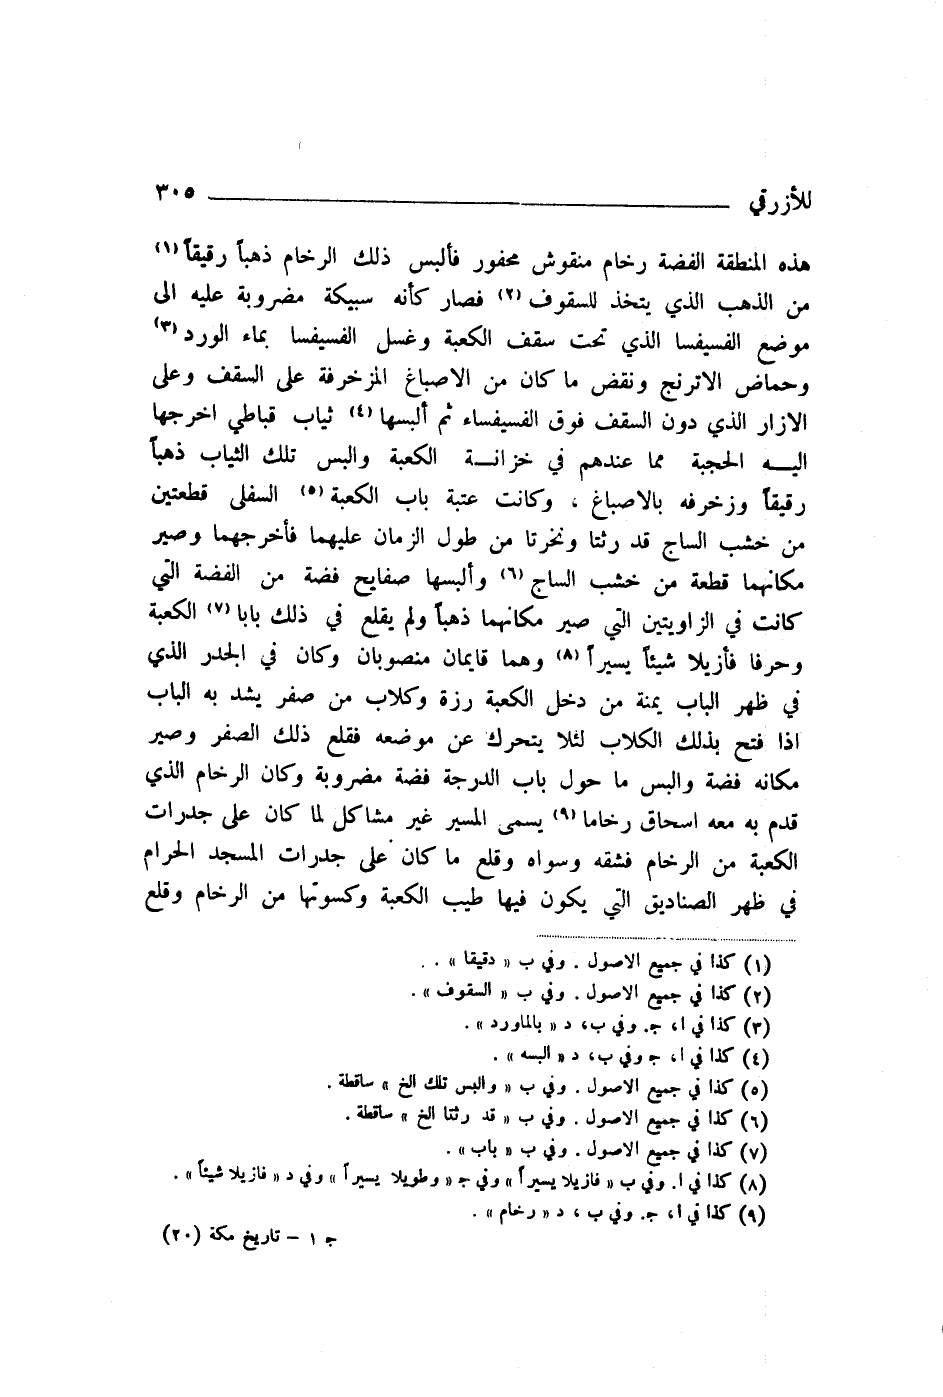 للأزرقي ٣٠٥
هذه المنطقة الفضة رخام منقوش محفور فألبس ذلك الرخام ذهباً رقيقاً (١)
من الذهب الذي يتخذ للسقوف (٢) فصار كأنه سبيكة مضروبة عليه الى
موضع الفسيفسا الذي تحت سقف الكعبة وغسل الفسيفسا بماء الورد (٣)
وحماض الاترنج ونقض ما كان من الاصباغ المزخرفة على السقف وعلى
الازار الذي دون السقف فوق الفسيفساء ثم ألبسها (٤) ثياب قباطي اخرجها
اليـــه الحجبة مما عندهم في خزانـــة الكعبة والبس تلك الثياب ذهباً
رقيقاً وزخرفه بالاصباغ ، وكانت عتبة باب الكعبة (٥) السفلى قطعتين
من خشب الساج قد رثتا ونخرتا من طول الزمان عليهما فأخرجهما وصير
مكانهما قطعة من خشب الساج (٦) وألبسها صفايح فضة من الفضة التي
كانت في الزاويتين التي صير مكانهما ذهباً ولم يقلع في ذلك بابا (٧) الكعبة
وحرفا فأزيلا شيئاً يسيراً (٨) وهما قايمان منصوبان وكان في الجدر الذي
في ظهر الباب يمنة من دخل الكعبة رزة وكلاب من صفر يشد به الباب
اذا فتح بذلك الكلاب لئلا يتحرك عن موضعه فقلع ذلك الصفر وصير
مكانه فضة والبس ما حول باب الدرجة فضة مضروبة وكان الرخام الذي
قدم به معه اسحاق رخاما (٩) يسمى المسير غير مشاكل لما كان على جدرات
الكعبة من الرخام فشقه وسواه وقلع ما كان على جدرات المسجد الحرام
في ظهر الصناديق التي يكون فيها طيب الكعبة وكسوتها من الرخام وقلع
(١) كذا في جميع الاصول . وفي ب « دقيقا » .
(٢) كذا في جميع الاصول . وفي ب « السقوف » .
(٣) كذا في ا، ج. وفي ب، د « بالماورد » .
(٤) كذا في ا، ج وفي ب، د « البسه » .
(٥) كذا في جميع الاصول . وفي ب « والبس تلك الخ » ساقطة .
(٦) كذا في جميع الاصول . وفي ب « قد رثتا الخ » ساقطة .
(٧) كذا في جميع الاصول . وفي ب « باب » .
(٨) كذا في ا. وفي ب « فازيلا يسيراً » وفي ج « وطويلا يسيراً » وفي د « فازيلا شيئاً » .
(٩) كذا في ا، ج. وفي ب ، د « رخام » .
ج ١ – تاريخ مكة (٢٠)